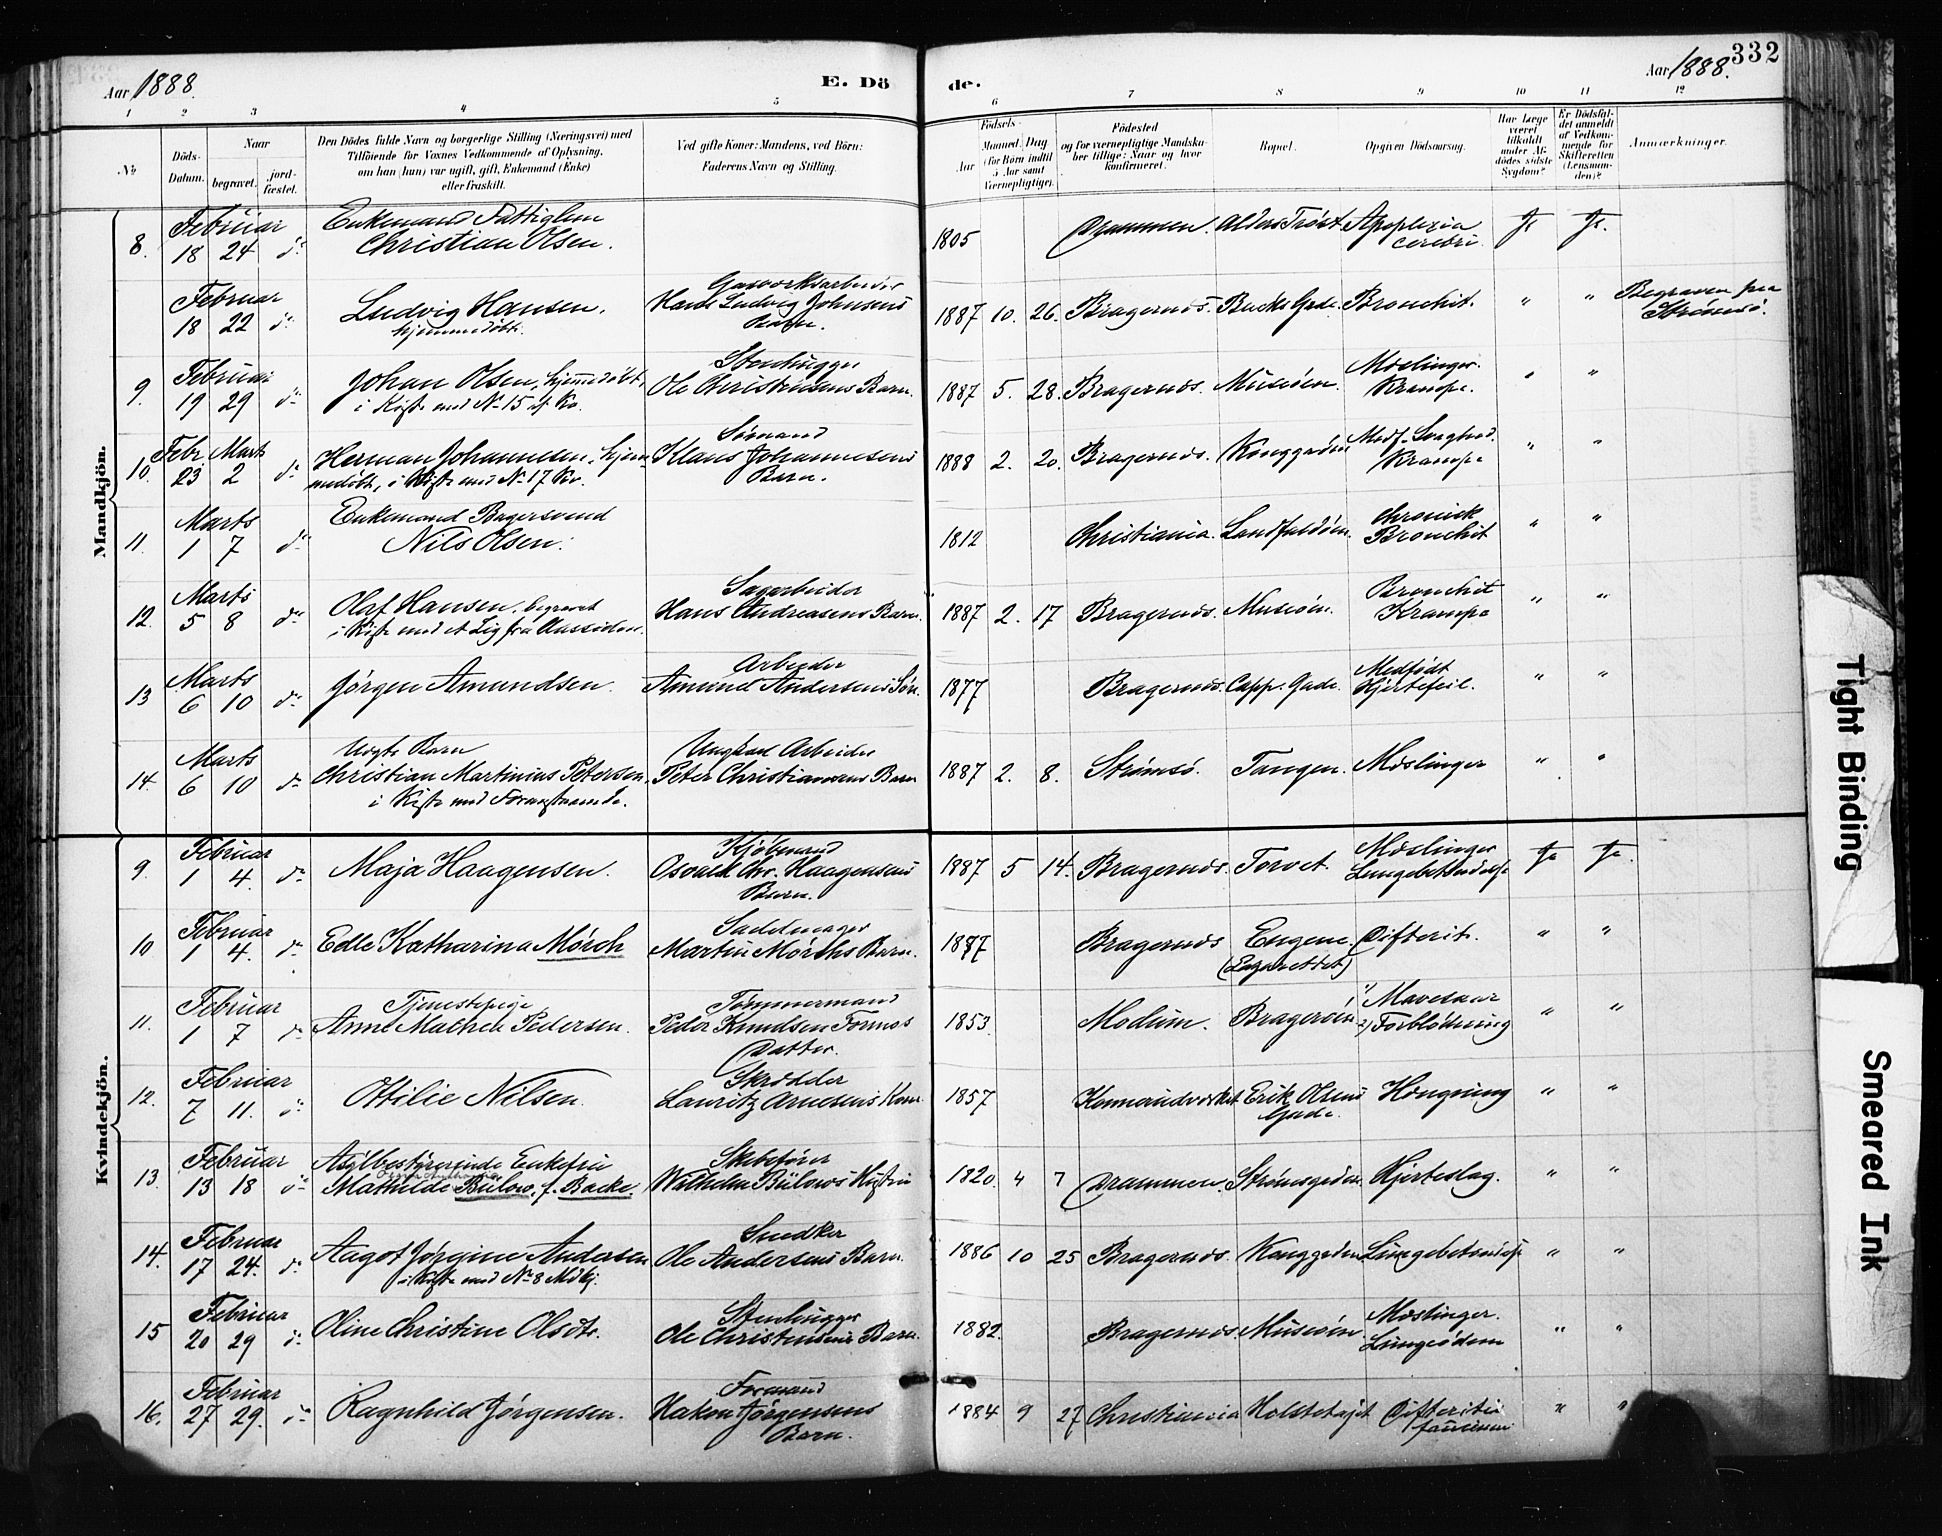 332
Aar 1888.
E. Dö
de.
Aar 1888.
1 2 3 4 5 6 7 8 9 10 11 12
№
Döds-Datum.
Naar
begravet.
jord-fæstet.
Den Dödes fulde Navn og borgerlige Stilling (Næringsvei) med
Tilföiende for Voxnes Vedkommende af Oplysning,
om han (hun) var ugift, gift, Enkemand (Enke)
eller fraskilt.
Ved gifte Koner: Mandens, ved Börn:
Faderens Navn og Stilling.
Födsels-
Aar
Maaned. Dag
(for Börn indtil
5 Aar samt
Værnepligtige).
Födested
og for værnepligtige Mandska-
ber tillige: Naar og hvor
konfirmeret.
Bopæl.
Opgiven Dödsaarsag.
Har Læge
været
tilkaldt
under Af-
dödes sidste
Sygdom?
Er Dödsfal-
det anmeldt
af Vedkom-
mende for
Skifteretten
(Lensman-
den)?
Anmærkninger.
Mandkjön.
8. Februar 18 24 do Enkemand Fattiglem
Christian Olsen. 1805 Drammen. Alders Trøst Apoplexia
cerebri. Ja Ja.
Februar 18 22 do Ludvig Hansen.
hjemmedöbt. Gasverksarbeider
Hans Ludvig Johnsens
Barn. 1887 10. 26. Bragernæs Bucks Gade. Bronchit. " " Begraven fra
Strømsö.
9. Februar 19 29 do Johan Olsen, hjemmedöbt,
i Kiste med No 15 af Kv. Stenhugger
Ole Christensens Barn. 1887 5. 28. Bragernæs. Museøen. Mæslinger.
Krampe. " "
10. Febr. 23 Marts 2 do Herman Johannesen, hjem-
medöbt, i Kiste med No 17 Kv. Sømand
Klaus Johannesens
Barn. 1888 2. 20. Bragernæs. Konggaden Medf. Svaghed.
Krampe " "
11. Marts 1 7 do Enkemand Bagersvend
Nils Olsen. 1812 Christiania. Landfaldøen. chronisk
Bronchit " "
12. Marts 5 8 do Olaf Hansen, begravet
i Kiste med et Lig fra Aassiden. Sagarbeider
Hans Andreasens Barn. 1887 2. 17 Bragernæs. Museøen. Bronchit
Krampe " "
13 Marts 6 10 do Jørgen Amundsen. Arbeider
Amund Andersens Søn. 1877 Bragernæs. Capp. Gade. Medfödt
Hjertefeil. " "
14. Marts 6 10 do Uægte Barn
Christian Martinius Petersen,
i Kiste med Foranstaaende. Ungkarl Arbeider
Peter Christiansens Barn 1887 2. 8. Strømsö. Tangen. Mæslinger " "
Kvindekjön.
9. Februar 1 4. do Maja Haagensen. Kjøbmand
Osvald Chr. Haagensens
Barn. 1887 5 14. Bragernæs. Torvet. Mæslinger
Lungebetændelse Ja Ja.
10 Februar 1 4. do Edle Katharina Mørch Sadelmager
Martin Mørchs Barn. 1877 Bragernæs Engene.
(Lazarettet) Difterit. " "
11. Februar 1 7 do Tjenestepige
Anne Mathea Pedersen. Tømmermand
Peder Knudsen Formos
Datter. 1853. Modum. Bragerøen 1) Mavesaar
2) Forblødning " "
12. Februar 7 11. do Ottilie Nilsen. Skrædder
Lauritz Arnesens Kone 1857 Konnerudværket Erik Olsens
Gade. Hængning " "
13. Februar 13 18 do Asylbestyrerinde Enkefru
Mathilde Bülow, f. Backe. Skibsfører
Wilhelm Bülows Hustru 1820. 4 7 Drammen. Strømsgaden. Hjerteslag. " "
14. Februar 17 24. do Aagot Jørgine Andersen
i Kiste med No 8 Mdkj. Snedker
Ole Andersens Barn. 1886 10 25 Bragernæs. Konggaden Lungebetændelse " "
15 Februar 20 29 do Oline Christine Olsdtr. Stenhugger
Ole Christensens Barn. 1882. Bragernæs. Museøen Mæslinger.
Lungeödem " "
16. Februar 27 29. do Ragnhild Jørgensen. Formand
Hakon Jørgensens
Barn. 1884 9 27 Christiania Holstehaget Difteritis
faucium " "
Tight Binding
Smeared Ink